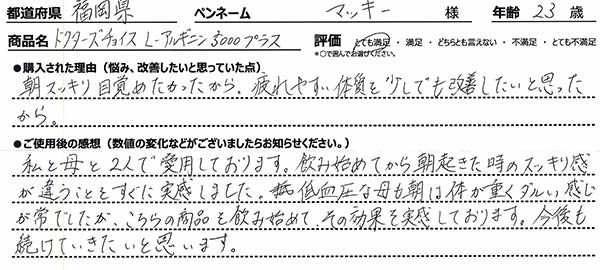 都道府県 福岡県 ペンネーム マッキー 様 年齢 23 歳
商品名 ドクターズチョイス L-アルギニン5000プラス 評価 とても満足・満足・どちらとも言えない・不満足・とても不満足
*○で囲んでお選びください。
●購入された理由（悩み、改善したいと思っていた点）
朝スッキリ目覚めたかったから、疲れやすい体質を少しでも改善したいと思った
から。
●ご使用後の感想（数値の変化などがございましたらお知らせください。）
私と母と2人で愛用しております。飲み始めてから朝起きた時のスッキリ感
が違うことをすぐに実感しました。低血圧な母も朝は体が重くダルい感じ
が常でしたが、こちらの商品を飲み始めて、その効果を実感しております。今後も
続けていきたいと思います。